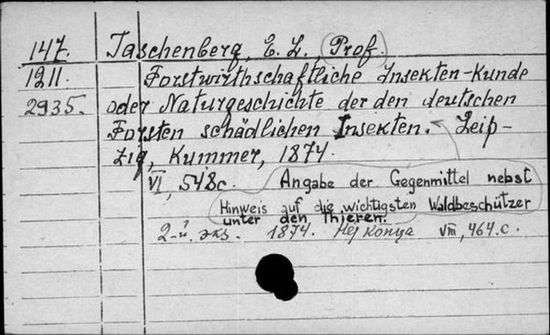 147. Taschenberg, E. L. (Prof.
1211. Forstwirthschaftliche Insekten-Kunde
2935. oder Naturgeschichte der den deutschen
Forsten schädlichen Insekten. Leip-
zig, Kummer, 1874.
VI, 548c. Angabe der Gegenmittel nebst
Hinweis auf die wichtigsten Waldbeschützer
unter den Thieren.
2-й экз. 1874. Нет конца VIII, 464.c.